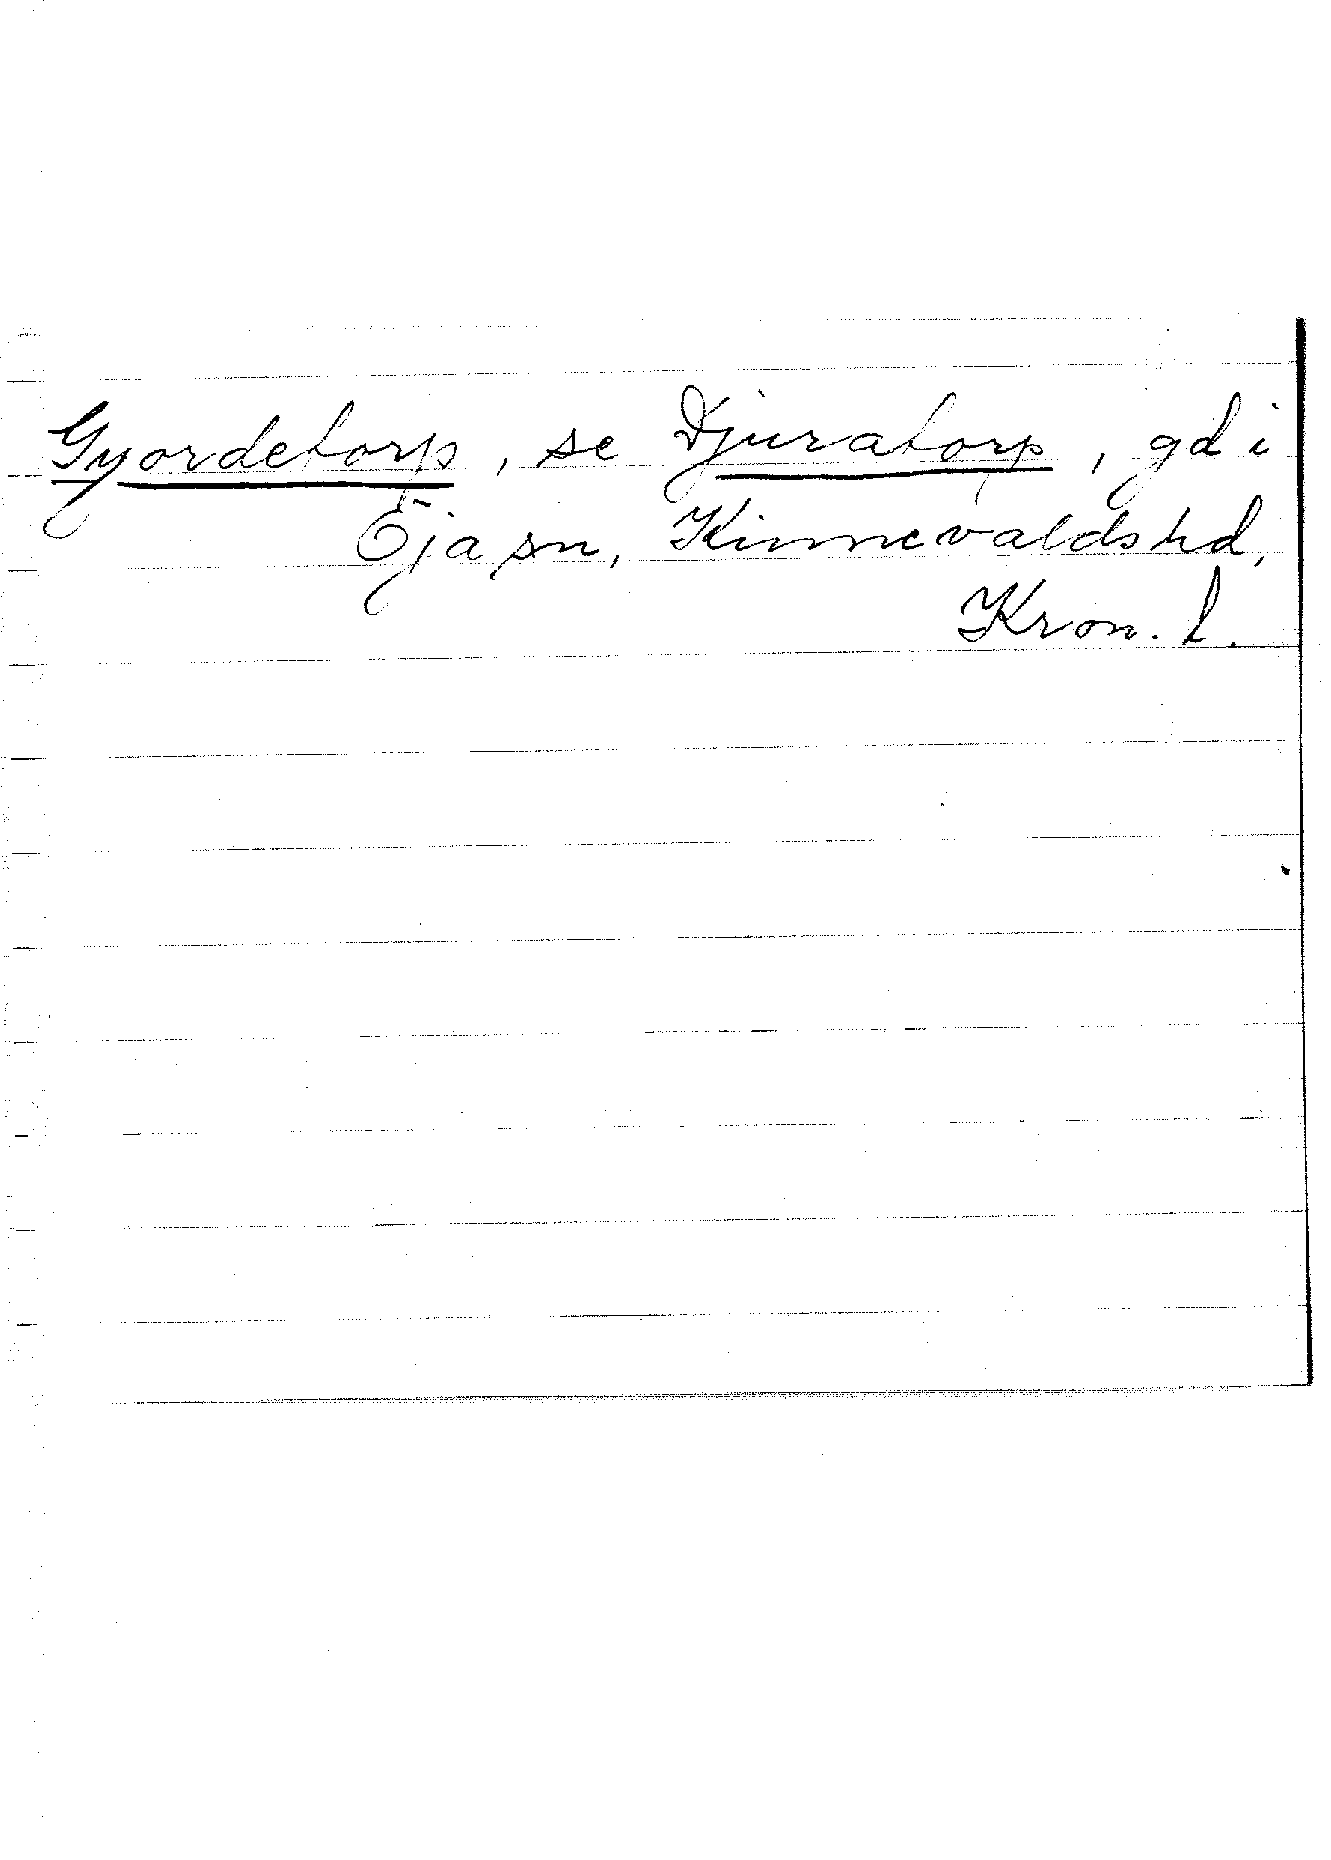 Gyordetorp, se Djuratorp, gd i
Öja sn, Kinnevalds hd,
Kron. l.